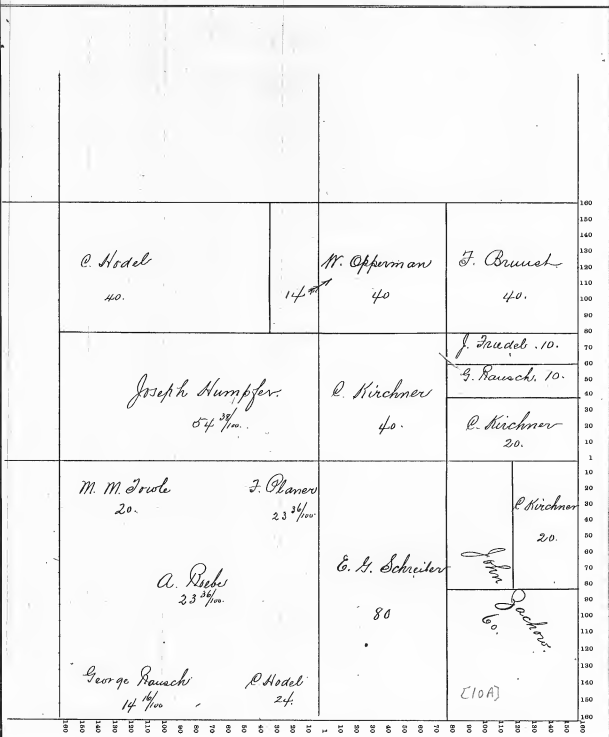 C. Hodel
40.
14
W. Opperman
40
F. Brunst
40.
J. Friedel. 10.
G. Rausch. 10.
Joseph Humpfer.
54 38/100.
C. Kirchner
40.
C. Kirchner
20.
M. M. Towle
20.
F. Planer
23 36/100
C Kirchner
20.
A. Beebe
23 36/100.
E. G. Schreiber
80
John
Zachow.
60.
George Rausch
14 16/100
C Hodel
24.
[10A]
160
150
140
130
120
110
100
90
80
70
60
50
40
30
20
10
1
10
20
30
40
50
60
70
80
90
100
110
120
130
140
150
160
160 150 140 130 120 110 100 90 80 70 60 50 40 30 20 10 1 10 20 30 40 50 60 70 80 90 100 110 120 130 140 150 160